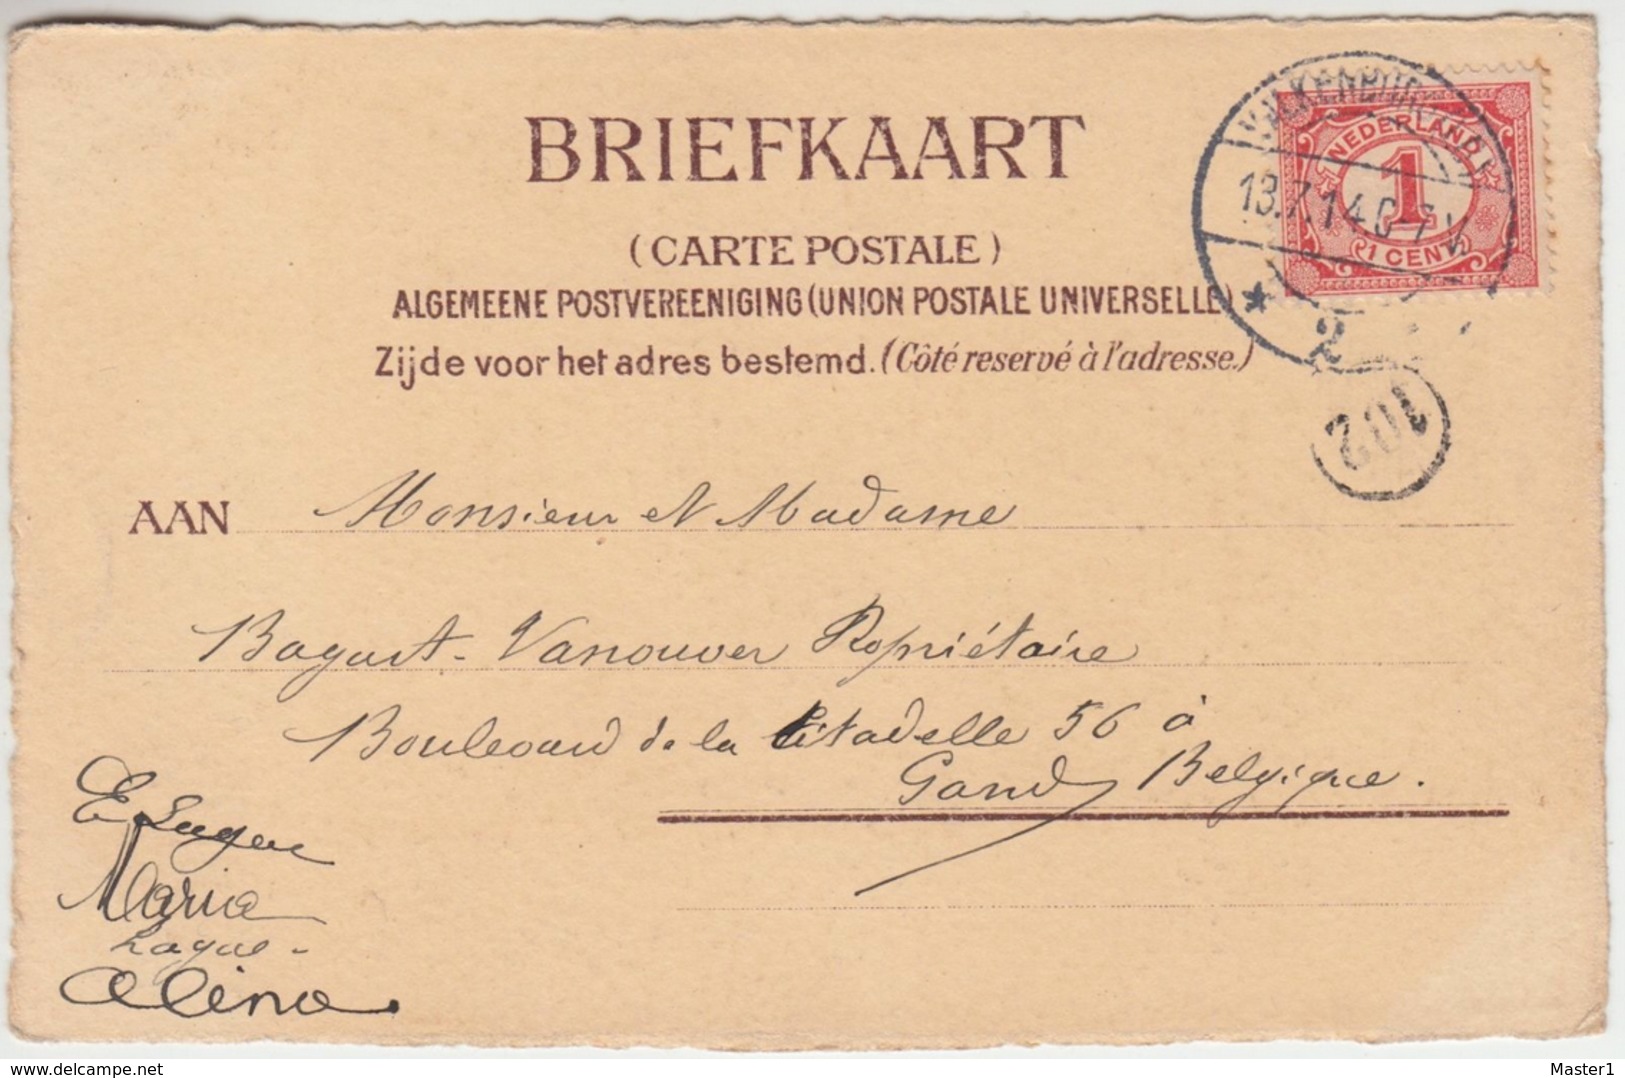 BRIEFKAART
(CARTE POSTALE)
ALGEMEENE POSTVEREENIGING (UNION POSTALE UNIVERSELLE)
Zijde voor het adres bestemd. (Côté reservé à l'adresse.)
NEDERLAND
1
1 CENT
13.7.14
2
102
AAN Monsieur et Madame
Bagart-Vanouver Propriétaire
Boulevard de la Citadelle 56 à
Gand Belgique.
Maria
Alina
Master1